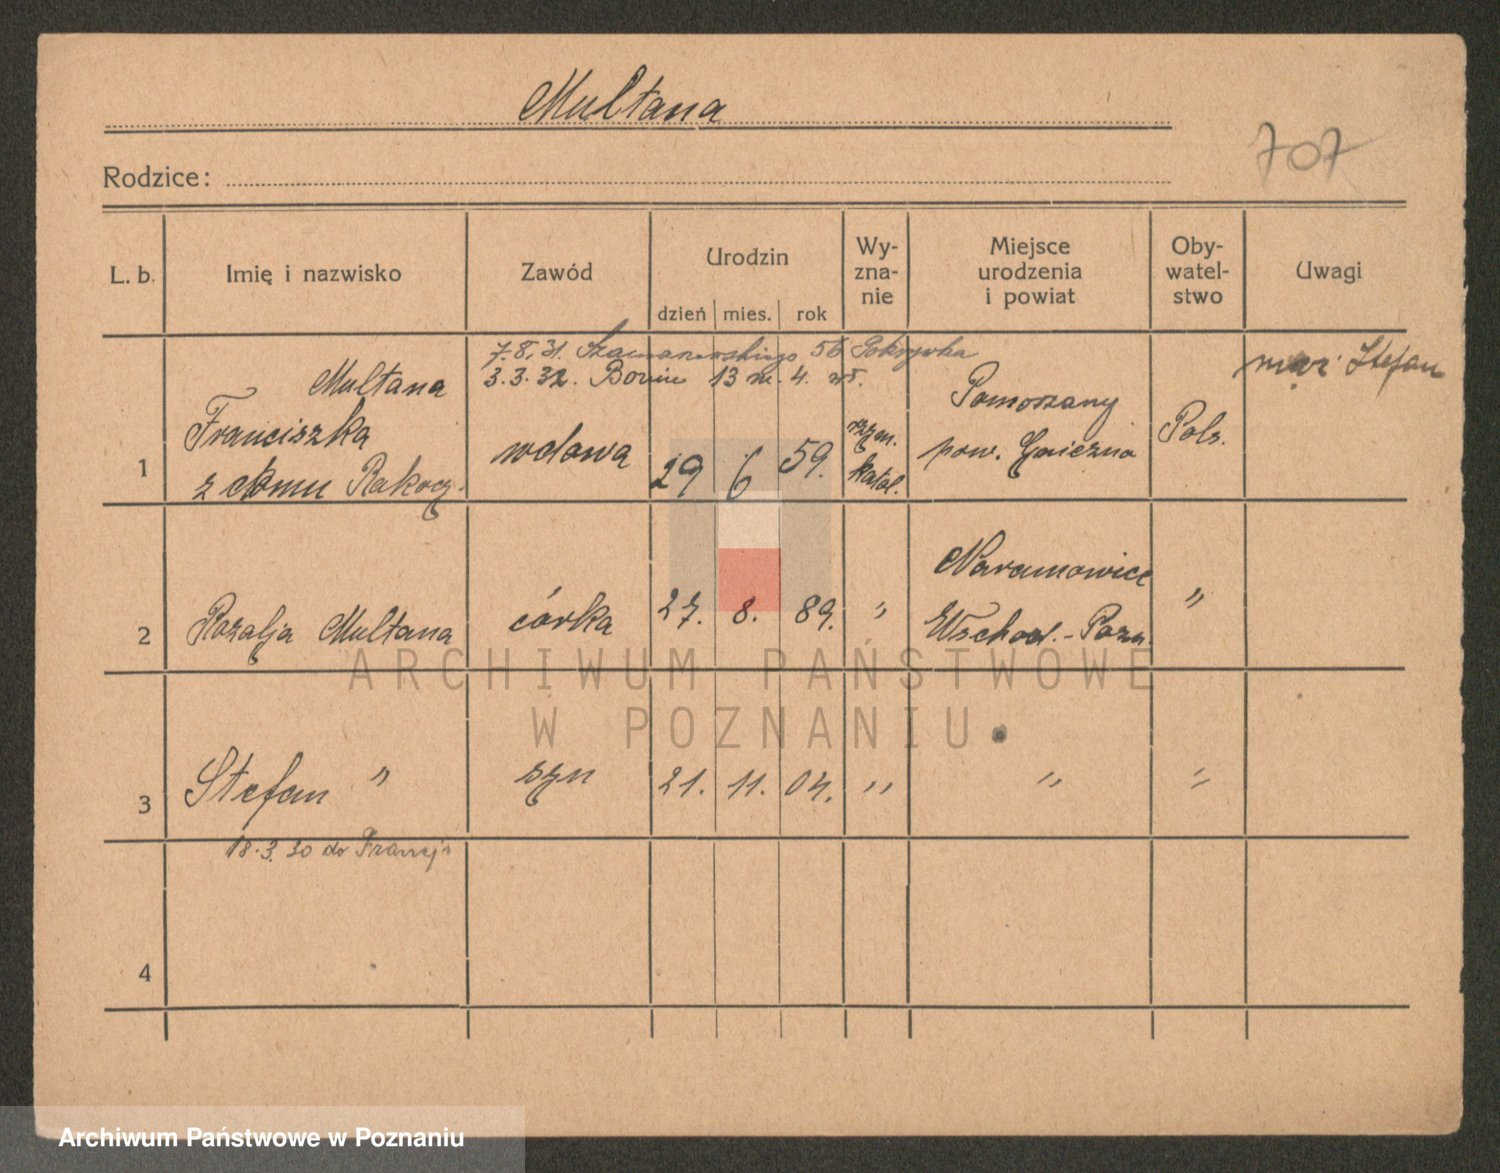 Multana
707
Rodzice:
L. b.
Imię i nazwisko
Zawód
Urodzin
dzień
mies.
rok
Wy-
zna-
nie
Miejsce
urodzenia
i powiat
Oby-
watel-
stwo
Uwagi
7.8.31. Szamarzewskiego 56 Pokrywka
3.3.32. Bonin 13 m. 4. wł.
1
Multana
Franciszka
z domu Rakocz.
wdowa
29
6
59.
rzym.
katol.
Pomorzany
pow. Gniezno
Pols.
mąż Stefan
2
Rozalja Multana
córka
27.
8.
89.
"
Naramowice
Wschod.-Pozn.
"
3
Stefan "
syn
21.
11.
04.
"
"
"
18.3.30 do Francji
4
ARCHIWUM PAŃSTWOWE
W POZNANIU
Archiwum Państwowe w Poznaniu